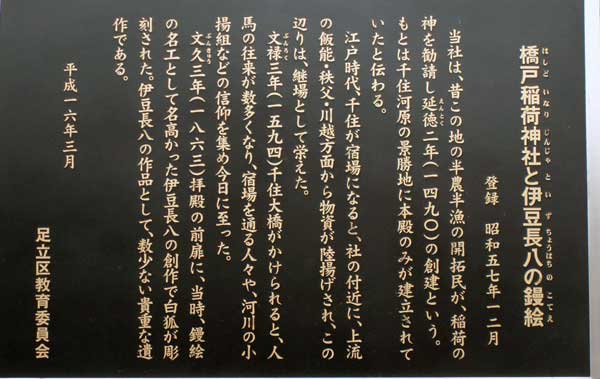 はしど いなり じんじゃ と いず ちょうはち の こてえ
橋戸稲荷神社と伊豆長八の鏝絵
登録 昭和五七年一二月
当社は、昔この地の半農半漁の開拓民が、稲荷の
えんとく
神を勧請し延徳二年(一四九〇)の創建という。
もとは千住河原の景勝地に本殿のみが建立されて
いたと伝わる。
江戸時代、千住が宿場になると、社の付近に、上流
の飯能・秩父・川越方面から物資が陸揚げされ、この
辺りは、継場として栄えた。
ぶんろく
文禄三年(一五九四)千住大橋がかけられると、人
馬の往来が数多くなり、宿場を通る人々や、河川の小
揚組などの信仰を集め今日に至った。
ぶんきゅう
文久三年(一八六三)拝殿の前扉に、当時、鏝絵
の名工として名高かった伊豆長八の創作で白狐が彫
刻された。伊豆長八の作品として、数少ない貴重な遺
作である。
平成一六年三月
足立区教育委員会